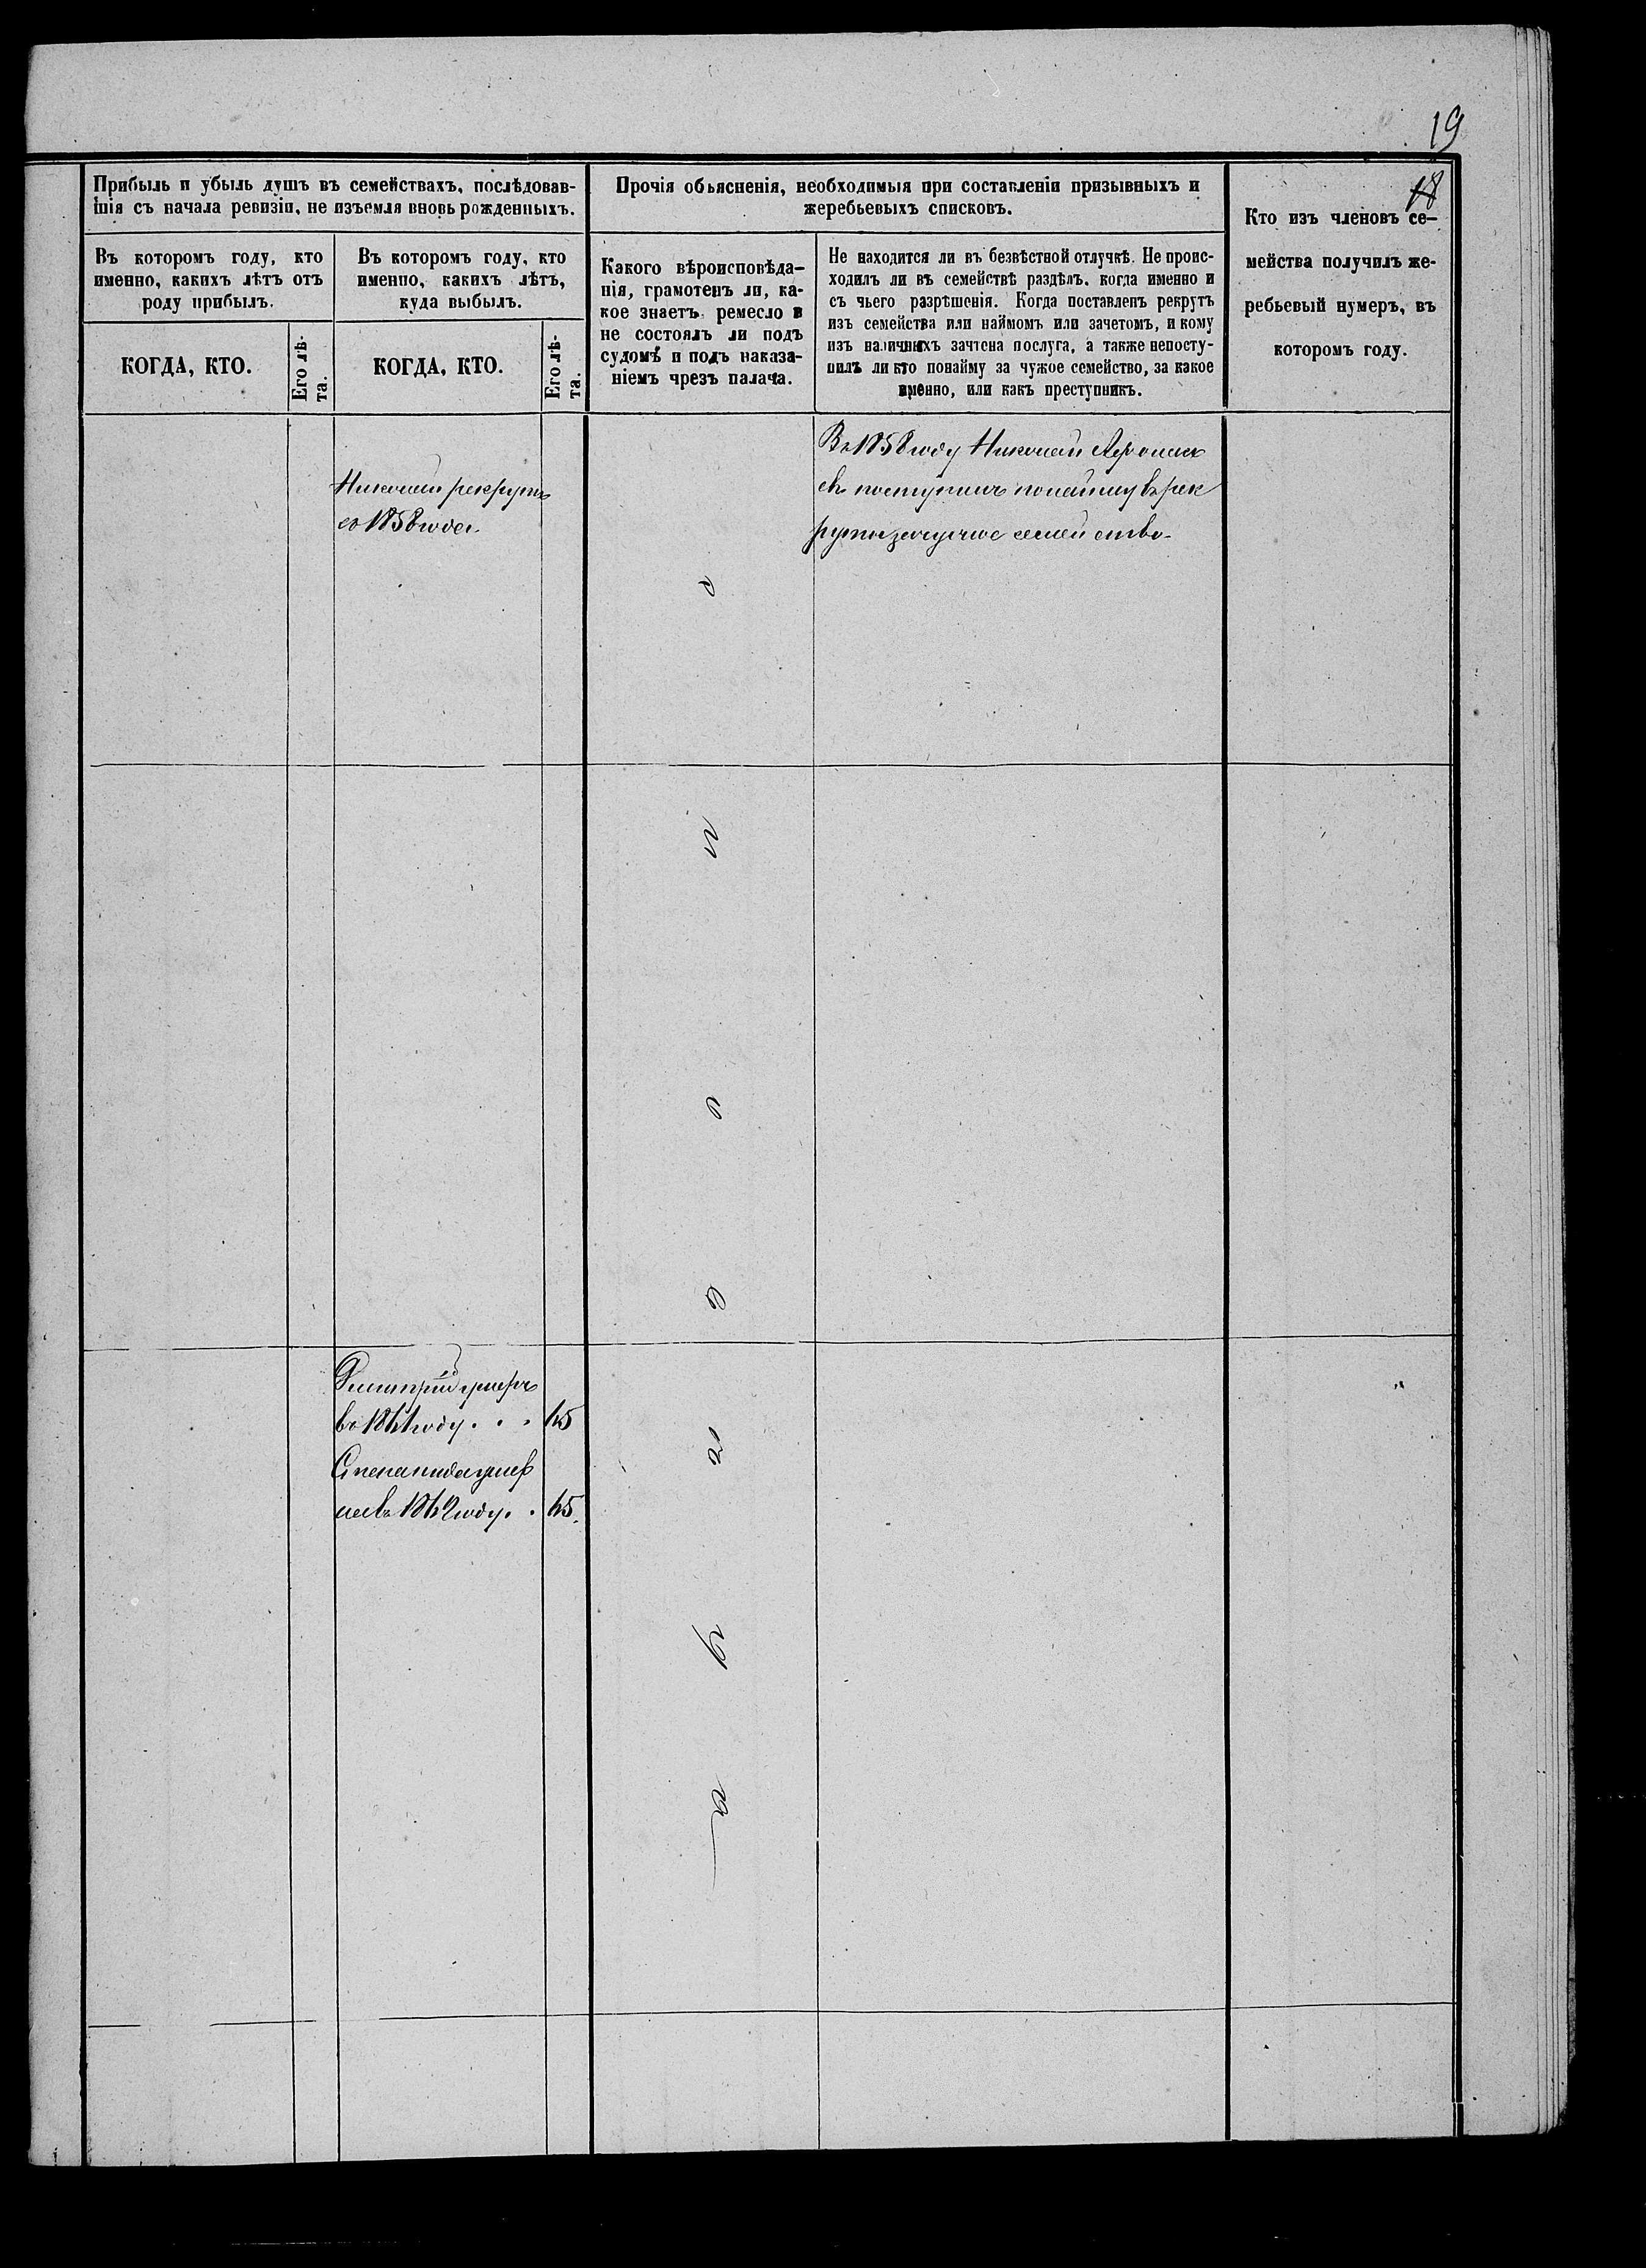 19
18
Прибыль и убыль душъ въ семействахъ, послѣдовав-
шія съ начала ревизіи, не изъемля вновь рожденныхъ.
Въ которомъ году, кто
именно, какихъ лѣтъ отъ
роду прибылъ.
КОГДА, КТО.
Его лѣ-
та.
Въ которомъ году, кто
именно, какихъ лѣтъ,
куда выбылъ.
КОГДА, КТО.
Его лѣ-
та.
Прочія обьясненія, необходимыя при составленіи призывныхъ и
жеребьевыхъ списковъ.
Какого вѣроисповѣда-
нія, грамотенъ ли, ка-
кое знаетъ ремесло и
не состоялъ ли подъ
судомъ и подъ наказа-
ніемъ чрезъ палача.
Не находится ли въ безвѣстной отлучкѣ. Не проис-
ходилъ ли въ семействѣ раздѣлъ, когда именно и
съ чьего разрѣшенія. Когда поставленъ рекрутъ
изъ семейства или наймомъ или зачетомъ, и кому
изъ наличныхъ зачтена послуга, а также непосту-
пилъ ли кто понайму за чужое семейство, за какое
именно, или какъ преступникъ.
Кто изъ членовъ се-
мейства получилъ же-
ребьевый нумеръ, въ
которомъ году.
Николай рекрутъ
со 1858 года
Въ 1858 году Николай
евъ поступилъ понайму въ рек
руты за чужое семейство
Дмитрий умеръ
въ 1861 году . . . 65
Степанида умер
ла въ 1862 году. . 65.
п
р
а
в
о
с
л